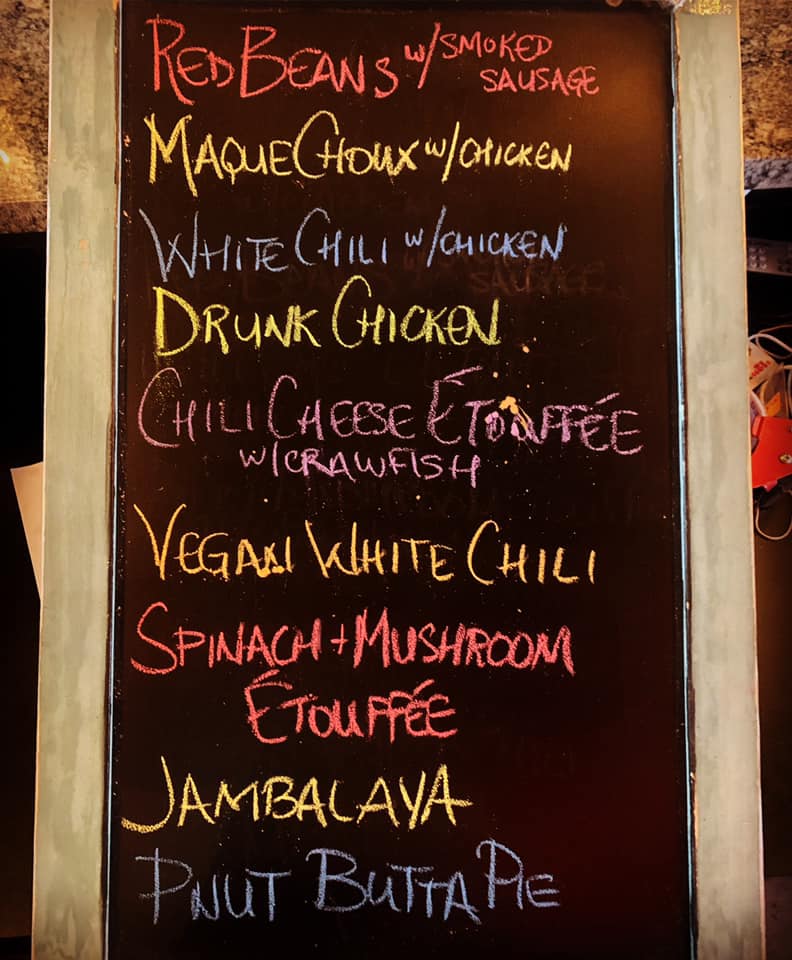 RED BEANS W/SMOKED
SAUSAGE
MAQUE CHOUX W/CHICKEN
WHITE CHILI W/CHICKEN
DRUNK CHICKEN
CHILI CHEESE ÉTOUFFÉE
W/CRAWFISH
VEGAN WHITE CHILI
SPINACH + MUSHROOM
ÉTOUFFÉE
JAMBALAYA
PNUT BUTTA PIE